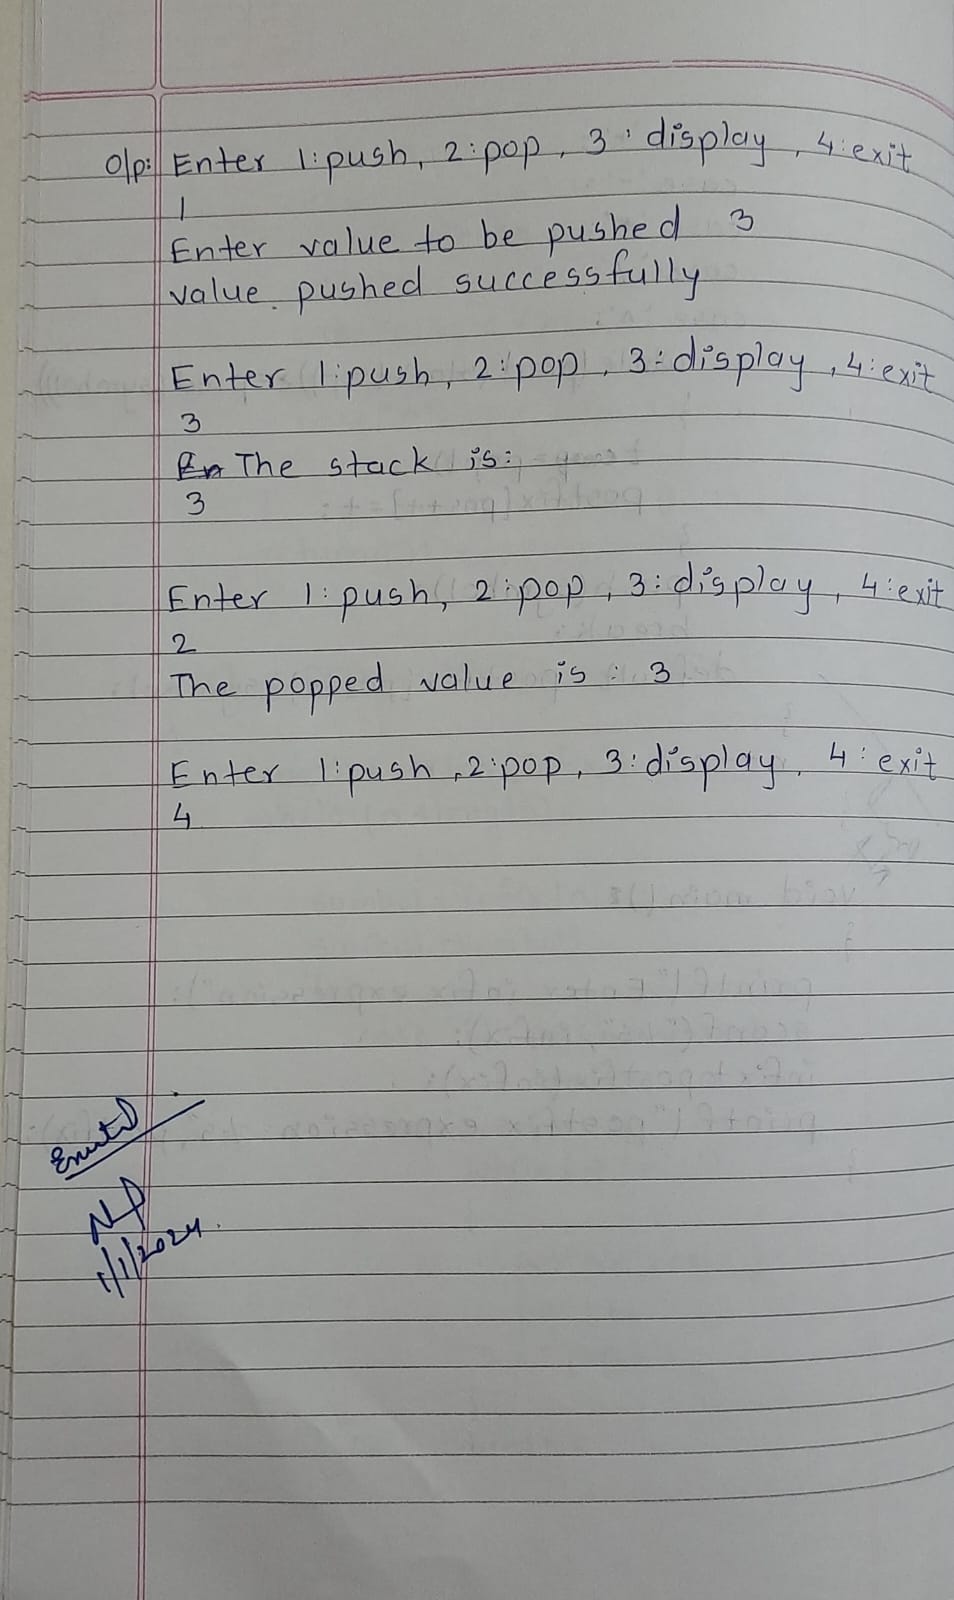 O/p: Enter 1:push, 2:pop, 3:display, 4:exit
1
Enter value to be pushed 3
value pushed successfully
Enter 1:push, 2:pop, 3:display, 4:exit
3
The stack is:
3
Enter 1:push, 2:pop, 3:display, 4:exit
2
The popped value is : 3
Enter 1:push, 2:pop, 3:display, 4:exit
4
1/1/2024